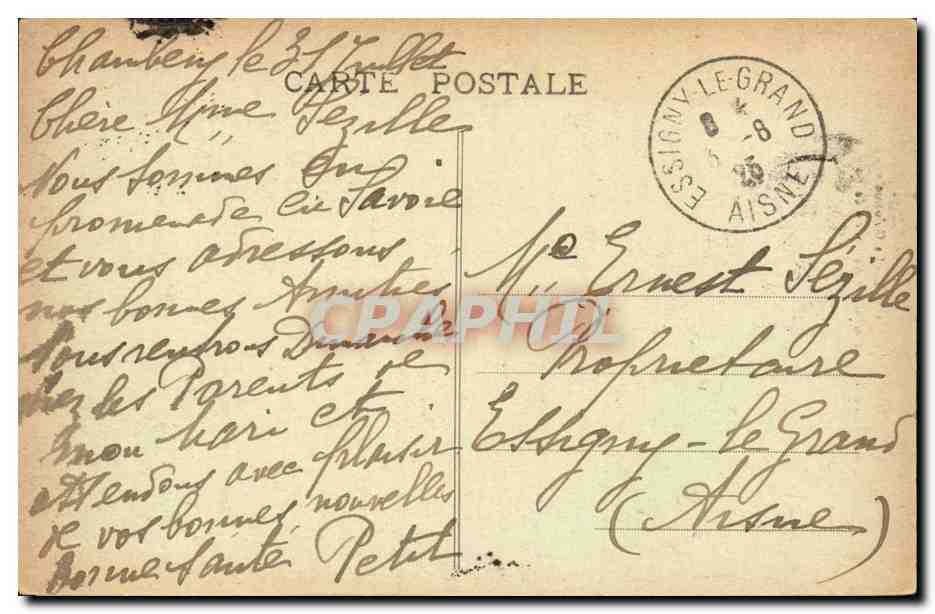 Chambery le 31 Juillet
CARTE POSTALE
Chère Mme Sézille
Nous sommes en
promenade en Savoie
et vous adressons
nos bonnes Amitiés
Nous rentrons Dimanche
chez les Parents de
mon Mari et
attendons avec plaisir
de vos bonnes nouvelles
Bonne Santé Petit
ESSIGNY-LE-GRAND
8
-8
AISNE
Me Ernest Sézille
Propriétaire
Essigny-le Grand
(Aisne)
CPAPHIL